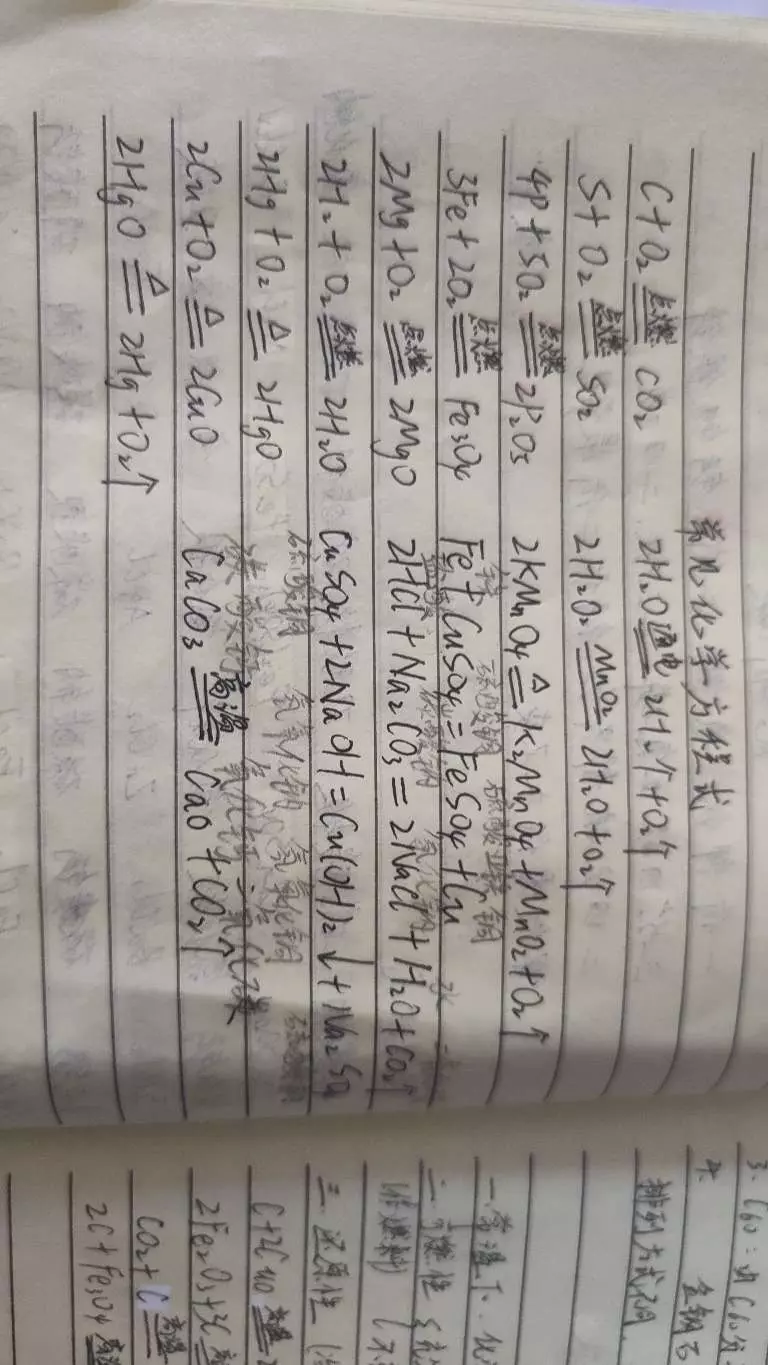 常见化学方程式
C+O₂ 点燃══ CO₂ 2H₂O 通电══ 2H₂↑+O₂↑
S+O₂ 点燃══ SO₂ 2H₂O₂ MnO₂══ 2H₂O+O₂↑
4P+5O₂ 点燃══ 2P₂O₅ 2KMnO₄ △══ K₂MnO₄+MnO₂+O₂↑
铁 硫酸铜 硫酸亚铁 铜
3Fe+2O₂ 点燃══ Fe₃O₄ Fe+CuSO₄=FeSO₄+Cu
盐酸 碳酸钠 氯化钠 水
2Mg+O₂ 点燃══ 2MgO 2HCl+Na₂CO₃=2NaCl+H₂O+CO₂↑
2H₂+O₂ 点燃══ 2H₂O CuSO₄+2NaOH=Cu(OH)₂↓+Na₂SO₄
硫酸铜 氢氧化钠 氢氧化铜 硫酸钠
2Hg+O₂ △══ 2HgO
碳酸钙 氧化钙 二氧化碳
2Cu+O₂ △══ 2CuO CaCO₃ 高温══ CaO+CO₂↑
2HgO △══ 2Hg+O₂↑
3. C60:由C60分
4.
排列方式不同
一.常温下.化
二.可燃性
(作燃料)
三.还原性
C+2CuO 高温
2Fe₂O₃+3C 高
CO₂+C 高温
2C+Fe₃O₄ 高温